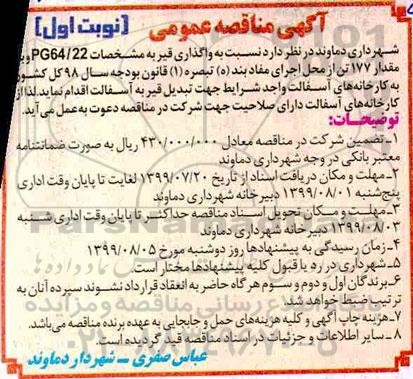 آگهی مناقصه عمومی (نوبت اول)
شهرداری دماوند در نظر دارد نسبت به واگذاری قیر به مشخصات PG64/22 و به
مقدار ۱۷۷ تن از محل اجرای مفاد بند (ه) تبصره (۱) قانون بودجه سال ۹۸ کل کشور
به کارخانه‌های آسفالت واجد شرایط جهت تبدیل قیر به آسفالت اقدام نماید. لذا از
کارخانه‌های آسفالت دارای صلاحیت جهت شرکت در مناقصه دعوت به‌عمل می‌آید.
توضیحات:
۱ـ تضمین شرکت در مناقصه معادل ۴۳۰/۰۰۰/۰۰۰ ریال به صورت ضمانتنامه
معتبر بانکی در وجه شهرداری دماوند
۲ـ مهلت و مکان دریافت اسناد از تاریخ ۱۳۹۹/۰۷/۲۰ لغایت تا پایان وقت اداری
پنج‌شنبه ۱۳۹۹/۰۸/۰۱ دبیرخانه شهرداری دماوند
۳ـ مهلت و مکان تحویل اسناد مناقصه حداکثر تا پایان وقت اداری شنبه
۱۳۹۹/۰۸/۰۳ دبیرخانه شهرداری دماوند
۴ـ زمان رسیدگی به پیشنهادها روز دوشنبه مورخ ۱۳۹۹/۰۸/۰۵
۵ـ شهرداری در رد یا قبول کلیه پیشنهادها مختار است.
۶ـ برندگان اول و دوم و سوم هرگاه حاضر به انعقاد قرارداد نشوند سپرده آنان به
ترتیب ضبط خواهد شد.
۷ـ هزینه چاپ آگهی و کلیه هزینه‌های حمل و جابجایی به عهده برنده مناقصه می‌باشد.
۸ـ سایر اطلاعات و جزئیات در اسناد مناقصه قید گردیده است.
عباس صفری ـ شهردار دماوند